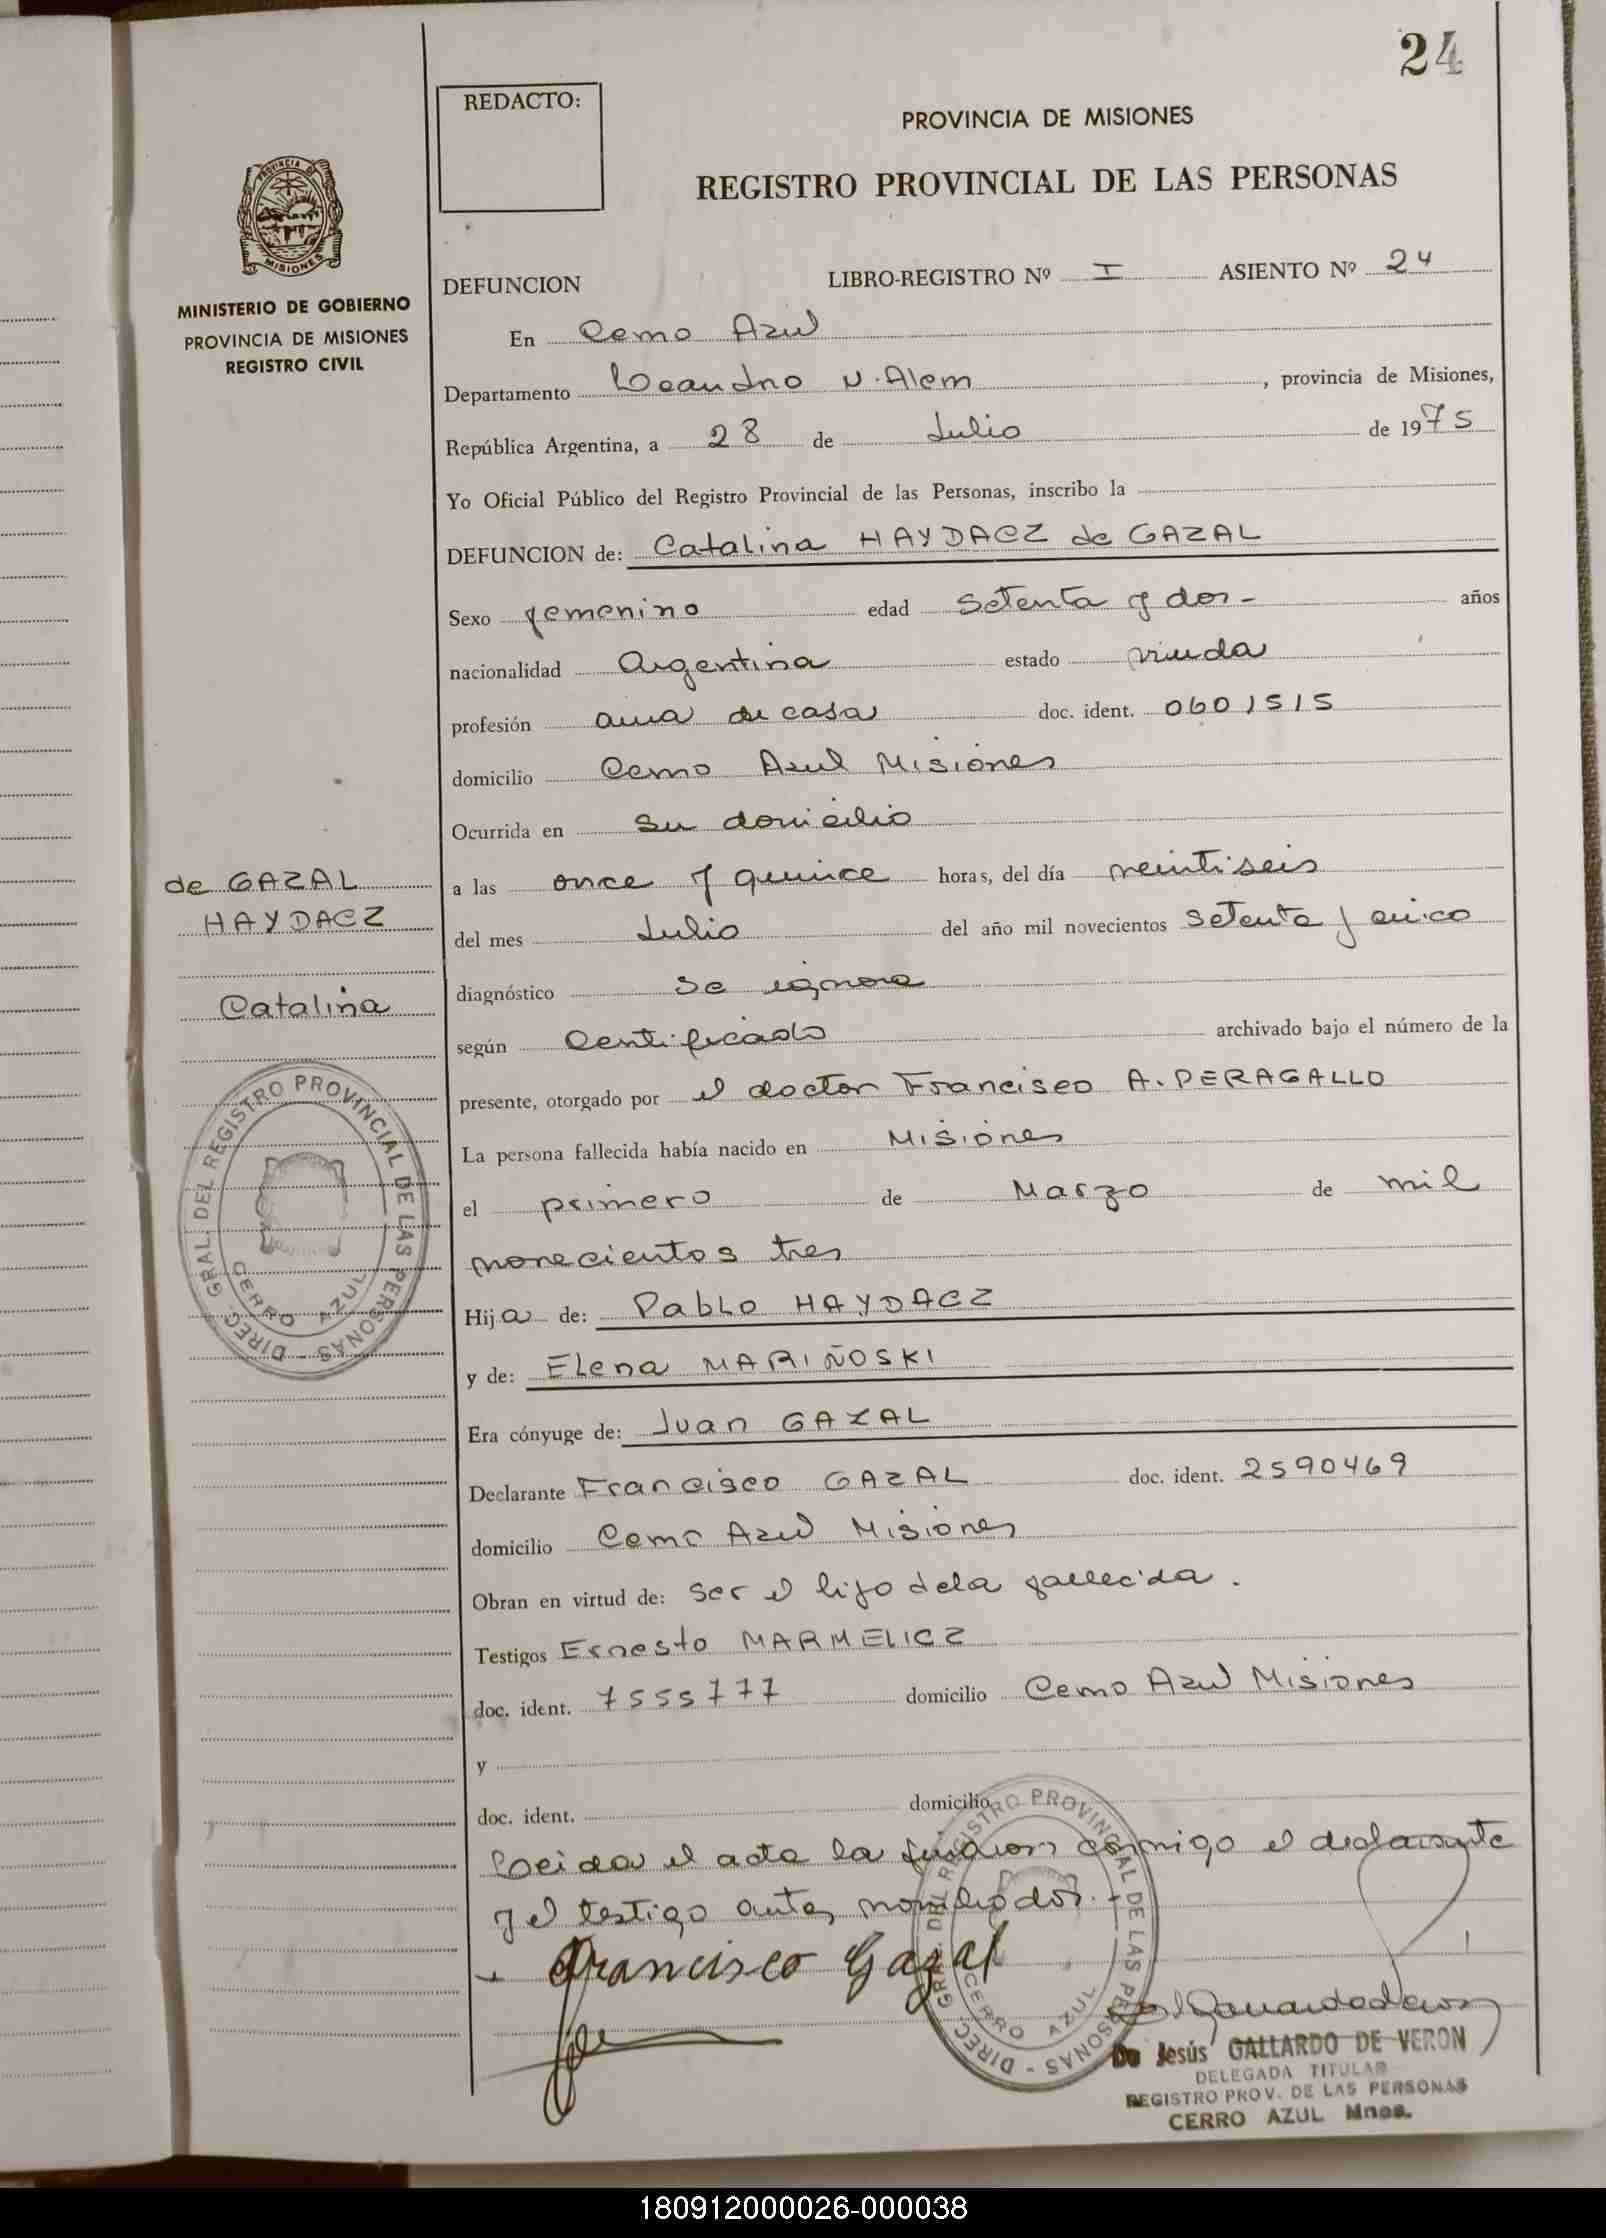 24
REDACTO:
PROVINCIA DE MISIONES
REGISTRO PROVINCIAL DE LAS PERSONAS
PROVINCIA DE
MISIONES
MINISTERIO DE GOBIERNO
PROVINCIA DE MISIONES
REGISTRO CIVIL
DEFUNCION LIBRO-REGISTRO Nº I ASIENTO Nº 24
En Cerro Azul
Departamento Leandro N. Alem, provincia de Misiones,
República Argentina, a 28 de Julio de 1975
Yo Oficial Público del Registro Provincial de las Personas, inscribo la
DEFUNCION de: Catalina HAYDACZ de GAZAL
Sexo femenino edad setenta y dos- años
nacionalidad Argentina estado viuda
profesión ama de casa doc. ident. 0601515
domicilio Cerro Azul Misiones
Ocurrida en su domicilio
a las once y quince horas, del día veintiseis
del mes Julio del año mil novecientos setenta y cinco
diagnóstico se ignora
según Certificado archivado bajo el número de la
presente, otorgado por el doctor Francisco A. PERAGALLO
La persona fallecida había nacido en Misiones
el primero de Marzo de mil
novecientos tres
Hija de: Pablo HAYDACZ
y de: Elena MARIÑOSKI
Era cónyuge de: Juan GAZAL
Declarante Francisco GAZAL doc. ident. 2590469
domicilio Cerro Azul Misiones
Obran en virtud de: ser el hijo de la fallecida.
Testigos Ernesto MARMELICZ
doc. ident. 7555777 domicilio Cerro Azul Misiones
y
doc. ident. domicilio
Leida el acta la firman conmigo el declarante
y el testigo antes nombrados.-
Francisco Gazal
de GAZAL
HAYDACZ
Catalina
DIREC. GRAL. DEL REGISTRO PROVINCIAL DE LAS PERSONAS -
CERRO AZUL
DIREC. GRAL. DEL REGISTRO PROVINCIAL DE LAS PERSONAS -
CERRO AZUL
De Jesús GALLARDO DE VERON
DELEGADA TITULAR
REGISTRO PROV. DE LAS PERSONAS
CERRO AZUL Mnes.
180912000026-000038